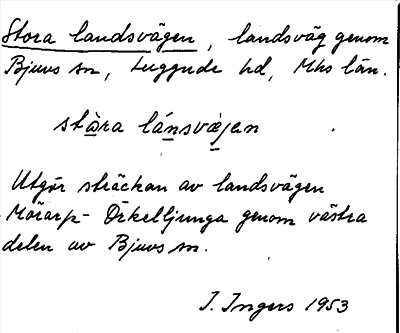 Stora landsvägen, landsväg genom
Bjuvs sn, Luggude hd, Mhs län.
stàra lánsvæ̀jen
Utgör sträckan av landsvägen
Mörarp - Örkelljunga genom västra
delen av Bjuvs sn.
I. Ingers 1953